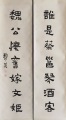 誰是蔡邕琴酒客
魏公懷舊嫁文姬